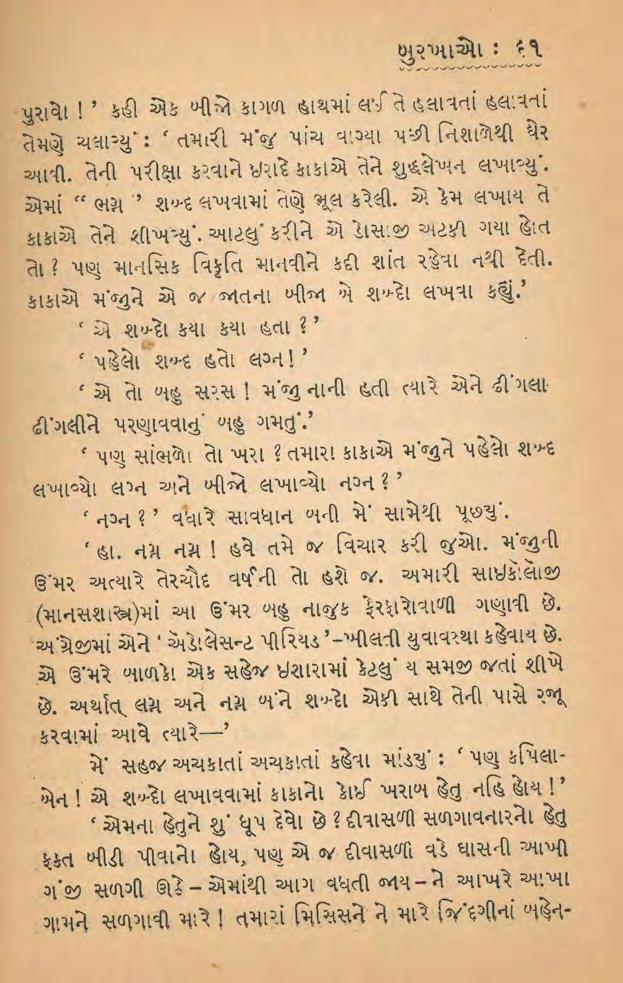 બુરખાઓ : ૬૧
પુરાવો ! ’ કહી એક બીજો કાગળ હાથમાં લઈ તે હલાવતાં હલાવતાં
તેમણે ચલાવ્યું : ‘ તમારી મંજુ પાંચ વાગ્યા પછી નિશાળેથી ઘેર
આવી. તેની પરીક્ષા કરવાને ઇરાદે કાકાએ તેને શુદ્ધલેખન લખાવ્યું.
એમાં “ ભગ્ન ” શબ્દ લખવામાં તેણે ભૂલ કરેલી. એ કેમ લખાય તે
કાકાએ તેને શીખવ્યું. આટલું કરીને એ ડોસાજી અટકી ગયા હોત
તો ? પણ માનસિક વિકૃતિ માનવીને કદી શાંત રહેવા નથી દેતી.
કાકાએ મંજુને એ જ જાતના બીજા બે શબ્દો લખવા કહ્યું.’
‘ એ શબ્દો કયા કયા હતા ? ’
‘ પહેલો શબ્દ હતો લગ્ન ! ’
‘ એ તો બહુ સરસ ! મંજુ નાની હતી ત્યારે એને ઢીંગલા-
ઢીંગલીને પરણાવવાનું બહુ ગમતું.’
‘ પણ સાંભળો તો ખરા ? તમારા કાકાએ મંજુને પહેલો શબ્દ
લખાવ્યો લગ્ન અને બીજો લખાવ્યો નગ્ન ? ’
‘ નગ્ન ? ’ વધારે સાવધાન બની મેં સામેથી પૂછ્યું.
‘ હા. નગ્ન નગ્ન ! હવે તમે જ વિચાર કરી જુઓ. મંજુની
ઉંમર અત્યારે તેરચૌદ વર્ષની તો હશે જ. અમારી સાઇકૉલૉજી
(માનસશાસ્ત્ર)માં આ ઉંમર બહુ નાજુક ફેરફારોવાળી ગણાવી છે.
અંગ્રેજીમાં એને ‘ ઍડોલેસન્ટ પીરિયડ ’–ખીલતી યુવાવસ્થા કહેવાય છે.
એ ઉંમરે બાળકો એક સહેજ ઇશારામાં કેટલું ય સમજી જતાં શીખે
છે. અર્થાત્ લગ્ન અને નગ્ન બંને શબ્દો એકી સાથે તેની પાસે રજૂ
કરવામાં આવે ત્યારે—’
મેં સહજ અચકાતાં અચકાતાં કહેવા માંડ્યું : ‘ પણ કપિલા-
બેન ! એ શબ્દો લખાવવામાં કાકાનો કોઈ ખરાબ હેતુ નહિ હોય ! ’
‘ એમના હેતુને શું ધૂપ દેવો છે ? દીવાસળી સળગાવનારનો હેતુ
ફક્ત બીડી પીવાનો હોય, પણ એ જ દીવાસળી વડે ઘાસની આખી
ગંજી સળગી ઊઠે – એમાંથી આગ વધતી જાય – ને આખરે આખા
ગામને સળગાવી મારે ! તમારાં મિસિસને ને મારે જિંદગીનાં બહેન-